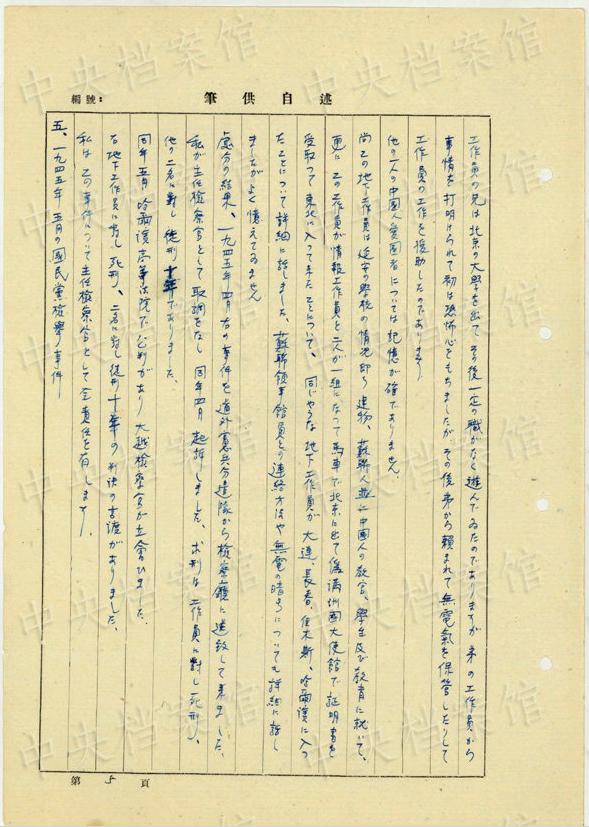 編號：
筆供自述
工作員の兄は北京の大學を出て その後一定の職がなく遊んでゐたのでありますが 弟の工作員から
事情を打明けられて初は恐怖心をもちましたが その後弟から頼まれて無電氣を保管したりして
工作員の工作を援助したのであります。
他の一人の中國人愛國者については記憶が確でありません。
尚この地下工作員は延安の學校の情況即ち建物、蘇聯人並に中國人の教官、學生及び教育に就いて、
更にこの工作員が情報工作員と二人が一組になって馬車で北京に出て偽満洲國大使館で証明書を
受取って東北に入って來たことについて、同じやうな地下工作員が大連、長春、佳木斯、哈爾濱に入っ
たことについて詳細に話しました、蘇聯領事館員との連絡方法や無電の暗号についても詳細に話し
ましたがよく憶えてゐません
處分の結果、一九四五年四月右の事件を道外憲兵分遣隊から檢察廳に送致して来ました、
私が主任檢察官として取調をなし 同年四月起訴しました、求刑は工作員に對し死刑、
他の二名に對し徒刑十年でありました、
同年五月哈爾濱高等法院で公判があり 大越檢察官が立會ひました
右地下工作員に對し死刑、二名に對し徒刑十年の判決の言渡がありました、
私はこの事件について主任檢察官として全責任を有します、
五、一九四五年五月の國民黨檢擧事件
第 5 頁
中央档案馆